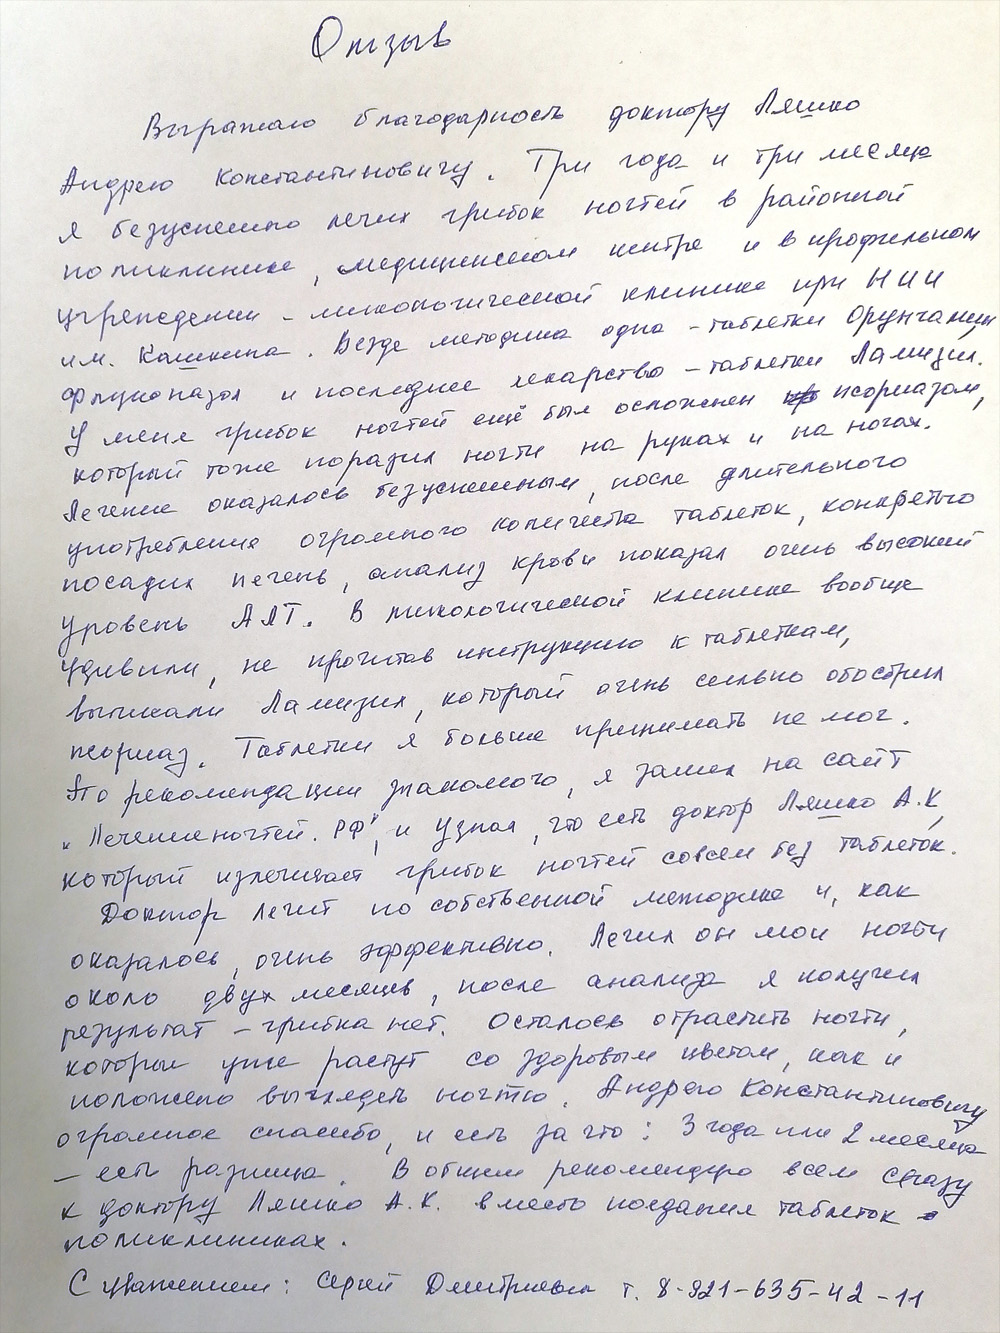 Отзыв
Выражаю благодарность доктору Ляшко
Андрею Константиновичу. Три года и три месяца
я безуспешно лечил грибок ногтей в районной
поликлинике, медицинском центре и в профильном
учреждении - микологической клинике при НИИ
им. Кашкина. Везде методика одна - таблетки Орунгамин
Флуконазол и последнее лекарство - таблетки Ламизил.
У меня грибок ногтей ещё был осложнен псориазом,
который тоже поразил ногти на руках и на ногах.
Лечение оказалось безуспешным, после длительного
употребления огромного количества таблеток, конкретно
посадил печень, анализ крови показал очень высокий
уровень АЛТ. В микологической клинике вообще
удивили, не прочитав инструкцию к таблеткам,
выписали Ламизил, который очень сильно обострил
псориаз. Таблетки я больше принимать не мог.
По рекомендации знакомого, я зашел на сайт
"Лечениеногтей.РФ", и узнал, что есть доктор Ляшко А.К,
который излечивает грибок ногтей совсем без таблеток.
Доктор лечит по собственной методике и, как
оказалось, очень эффективно. Лечил он мои ногти
около двух месяцев, после анализа я получил
результат - грибка нет. Осталось отрастить ногти,
которые уже растут со здоровым цветом, как и
положено выглядеть ногтю. Андрею Константиновичу
огромное спасибо, и есть за что: 3 года или 2 месяца
- есть разница. В общем рекомендую всем сразу
к доктору Ляшко А.К. вместо поедания таблеток в
поликлиниках.
С уважением: Сергей Дмитриевич т. 8-921-635-42-11